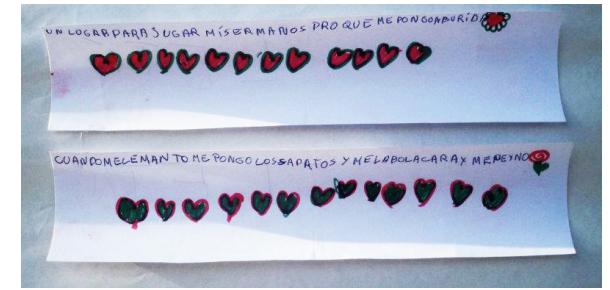 UN LOGAR PARA JUGAR MÍSERMANOS PRO QUE ME PONGO ABURIDA
CUANDO MELEMAN TO ME PONGO LOSSAPATOS Y MELABOLACARA Y MEPEYNO